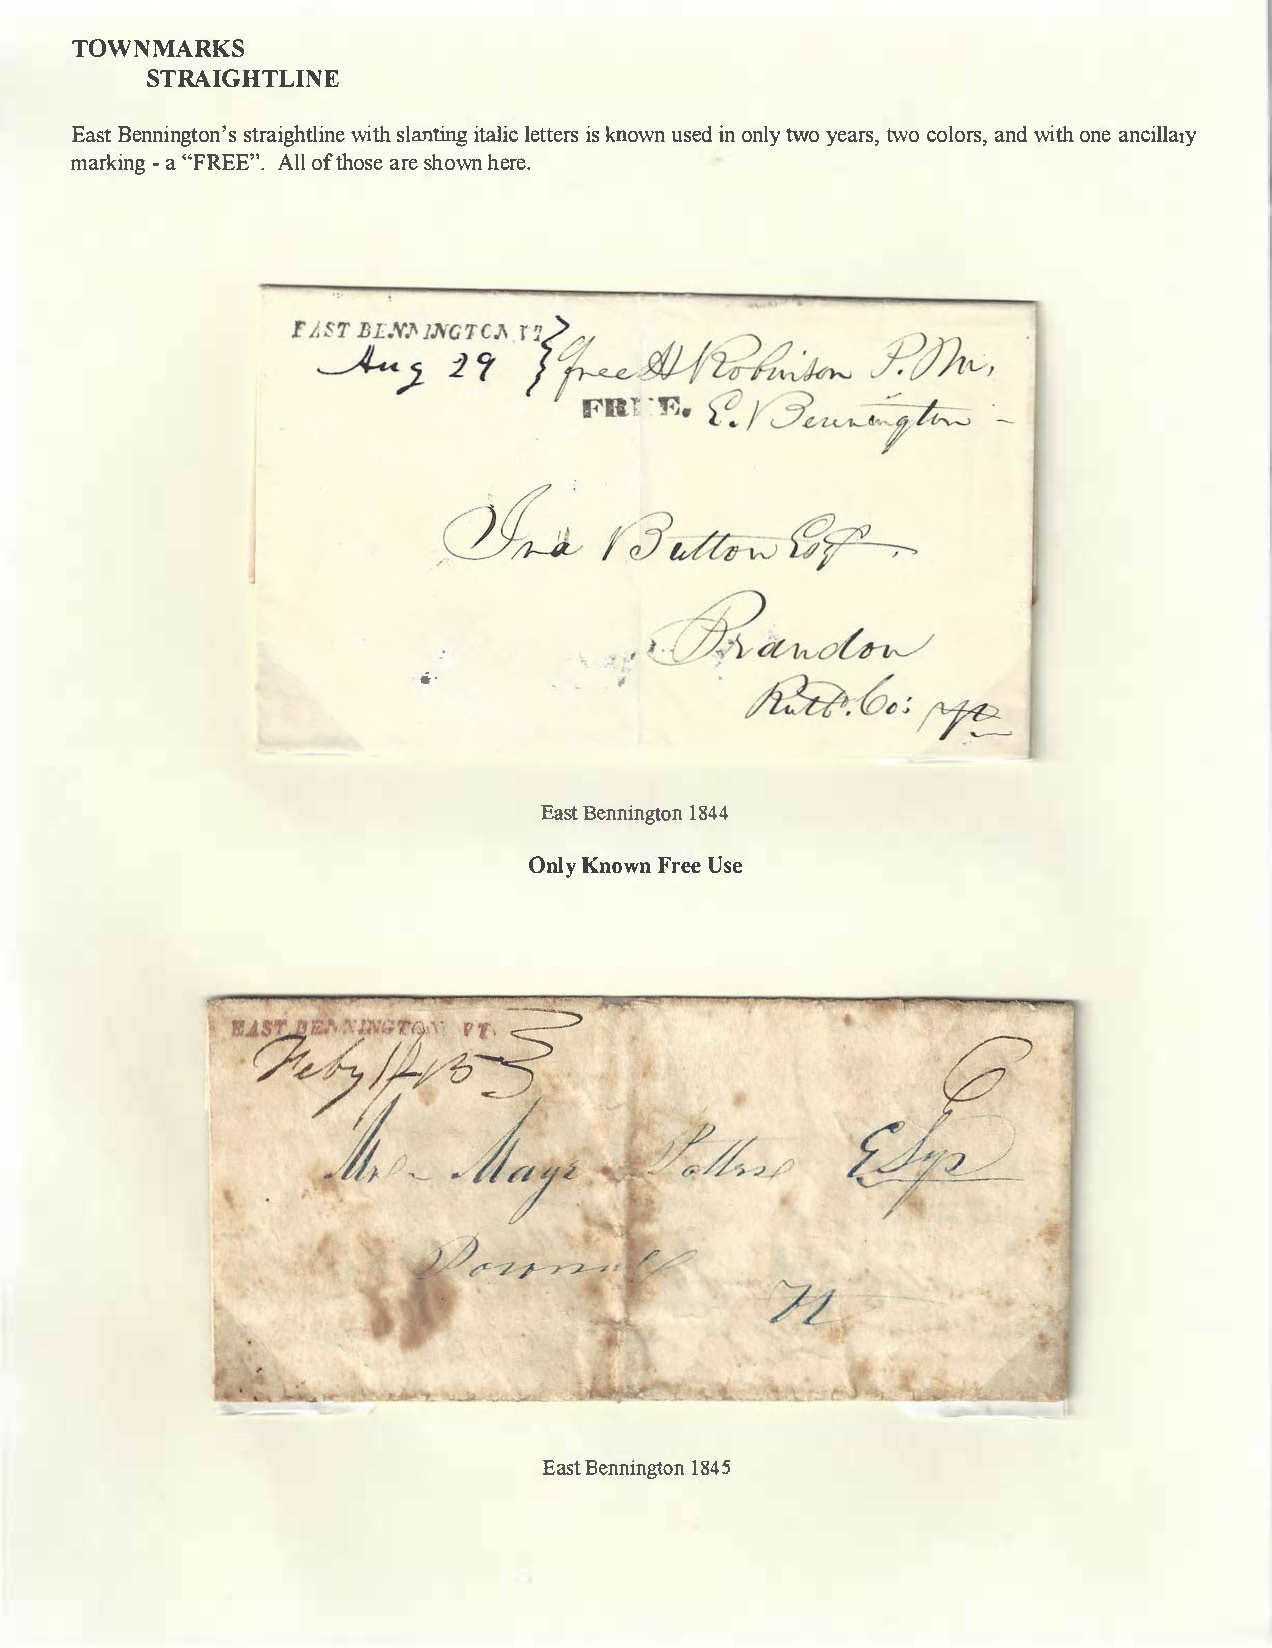 TOWNMARKS
STRAIGHTLINE
East Bennington's straightline with slanting italic letters is known used in only two years, two colors, and with one ancillary
marking - a “FREE”.  All of those are shown here.
EAST BENNINGTON VT
Aug 29
free H Robinson P. M,
FREE.
E. Bennington -
Ira Button Esqr.
Brandon
Rutd. Co: Vt
East Bennington 1844
Only Known Free Use
EAST BENNINGTON VT.
Feby
6
Mr Potter Esqr
Pownal
Vt
East Bennington 1845